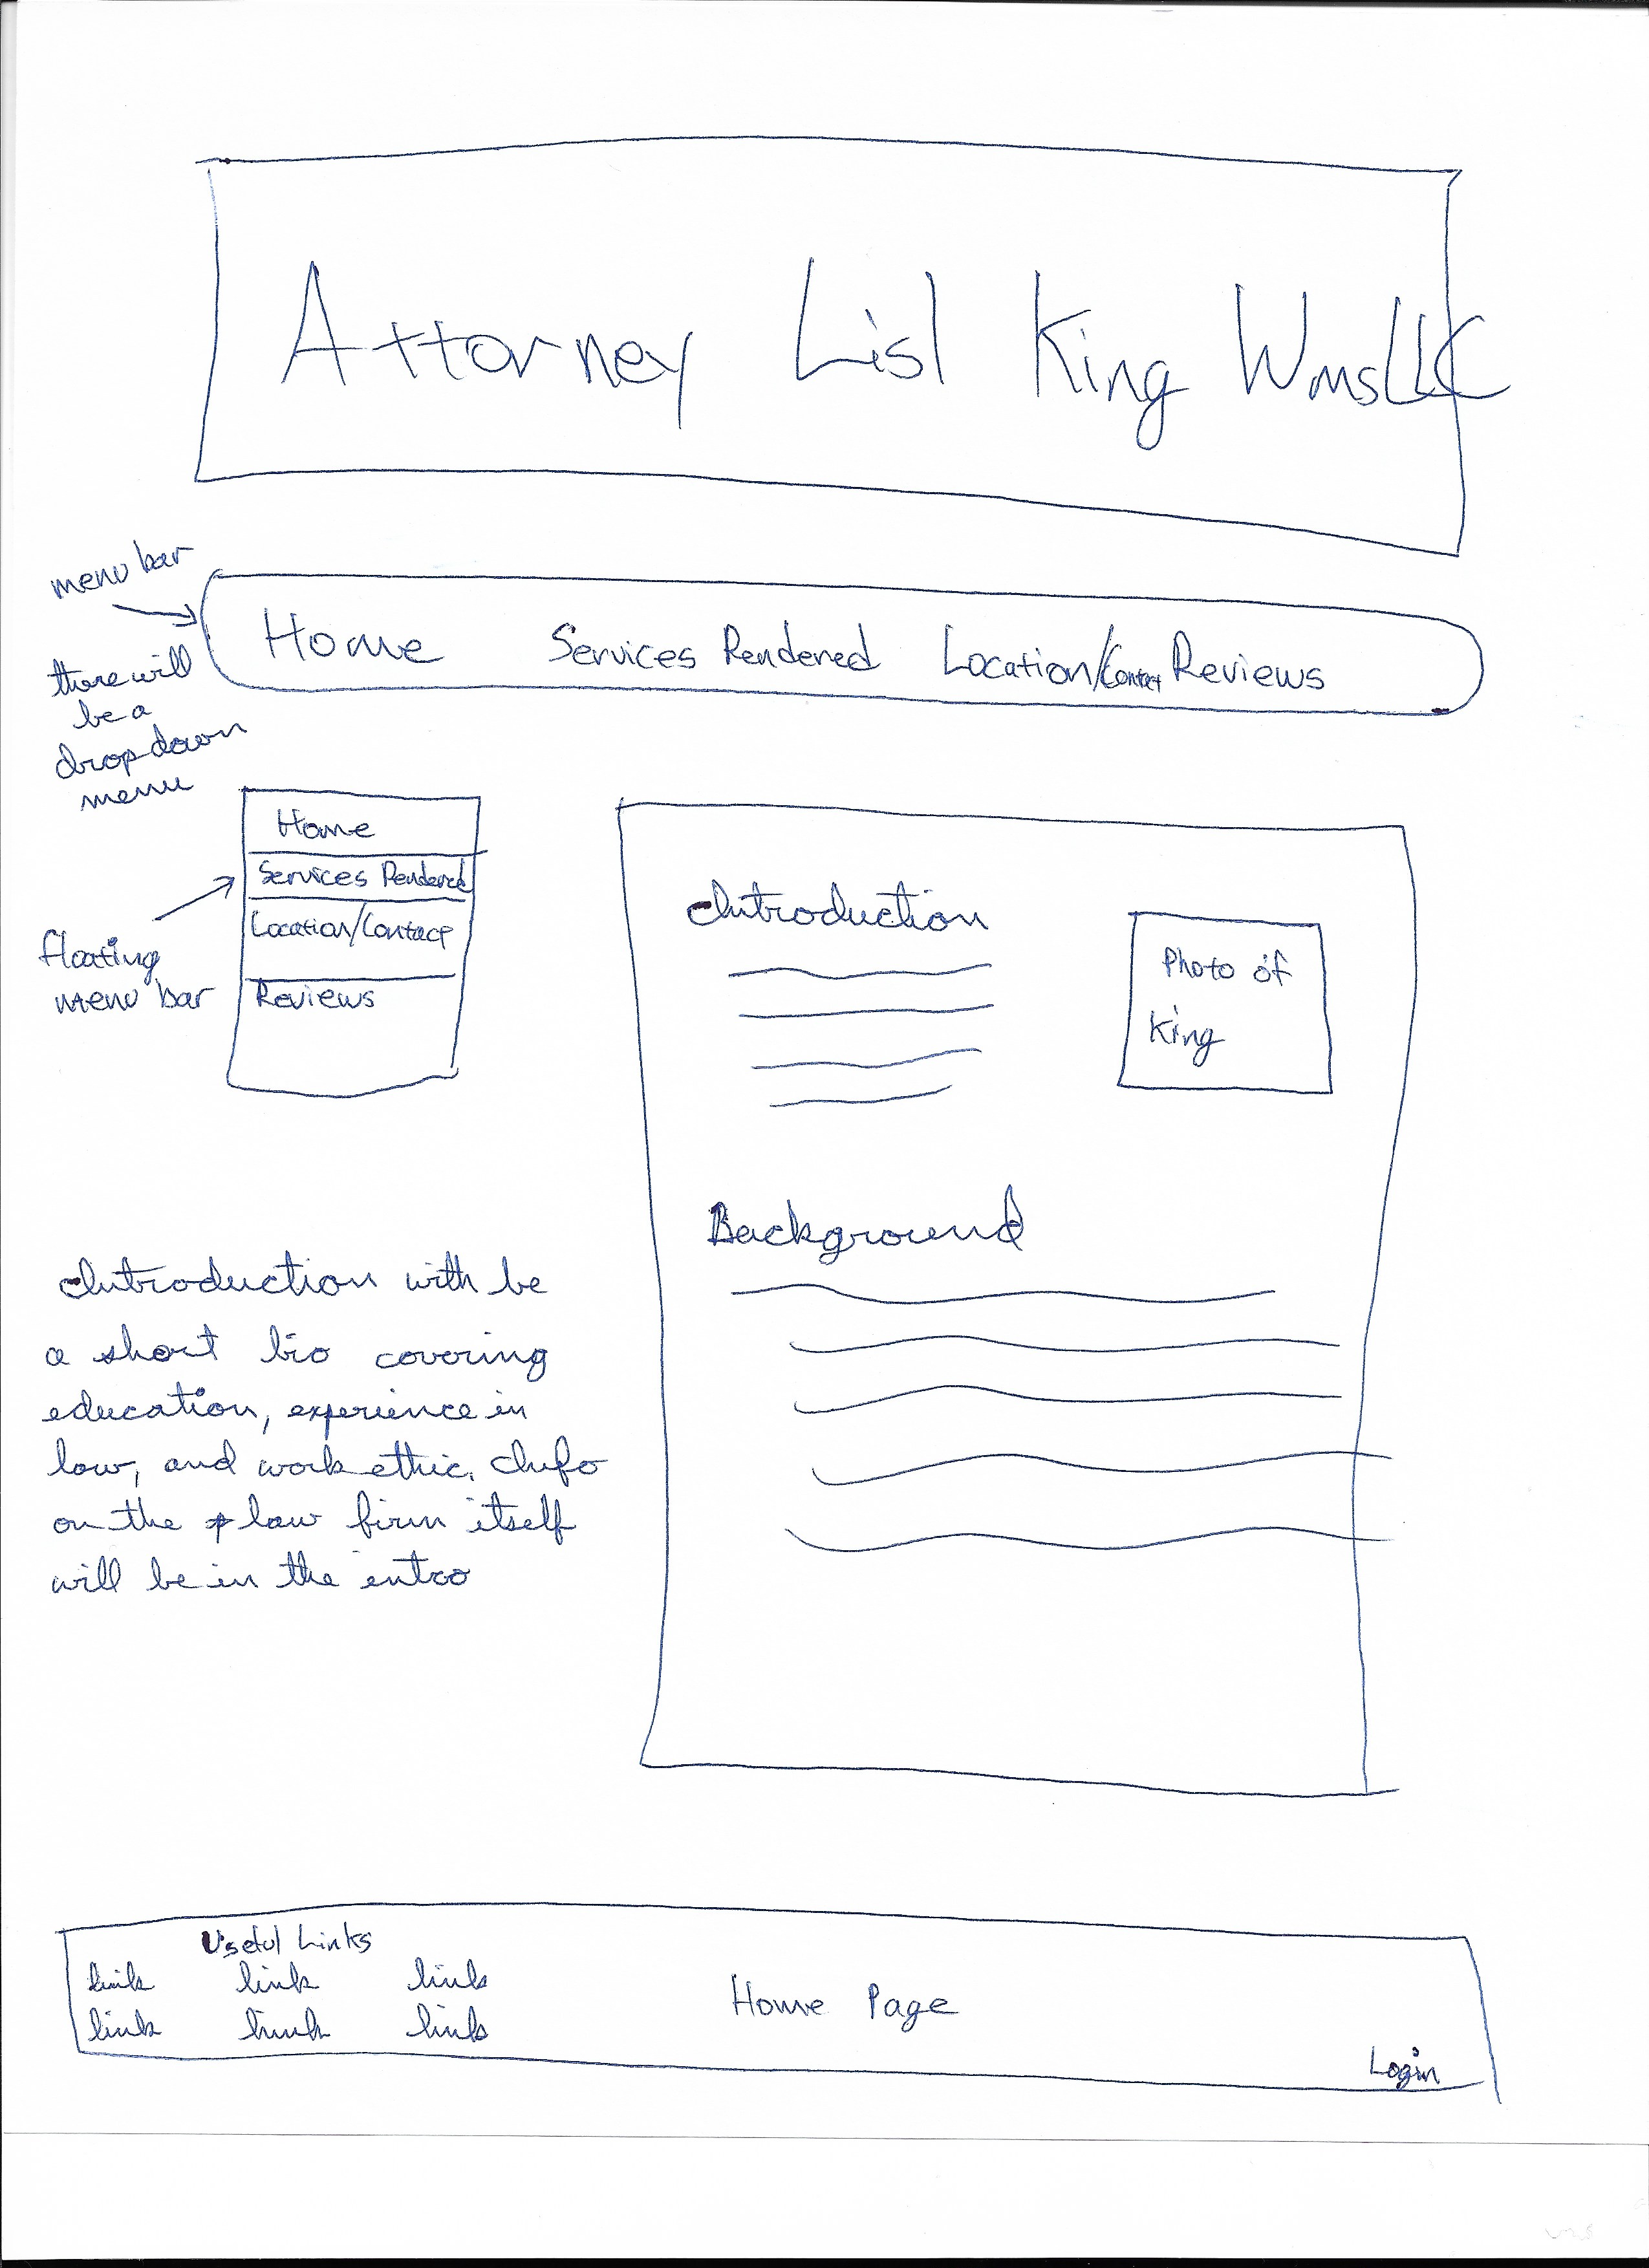 Attorney Lisl King Wms LLC
menu bar
there will
be a
drop down
menu
Home Services Rendered Location/Contact Reviews
Home
Services Rendered
Location/Contact
Reviews
floating
menu bar
Introduction
Photo of
King
Background
Introduction with be
a short bio covering
education, experience in
law, and work ethic. Info
on the law firm itself
will be in the intro
Useful Links
link link link
link link link
Home Page
Login